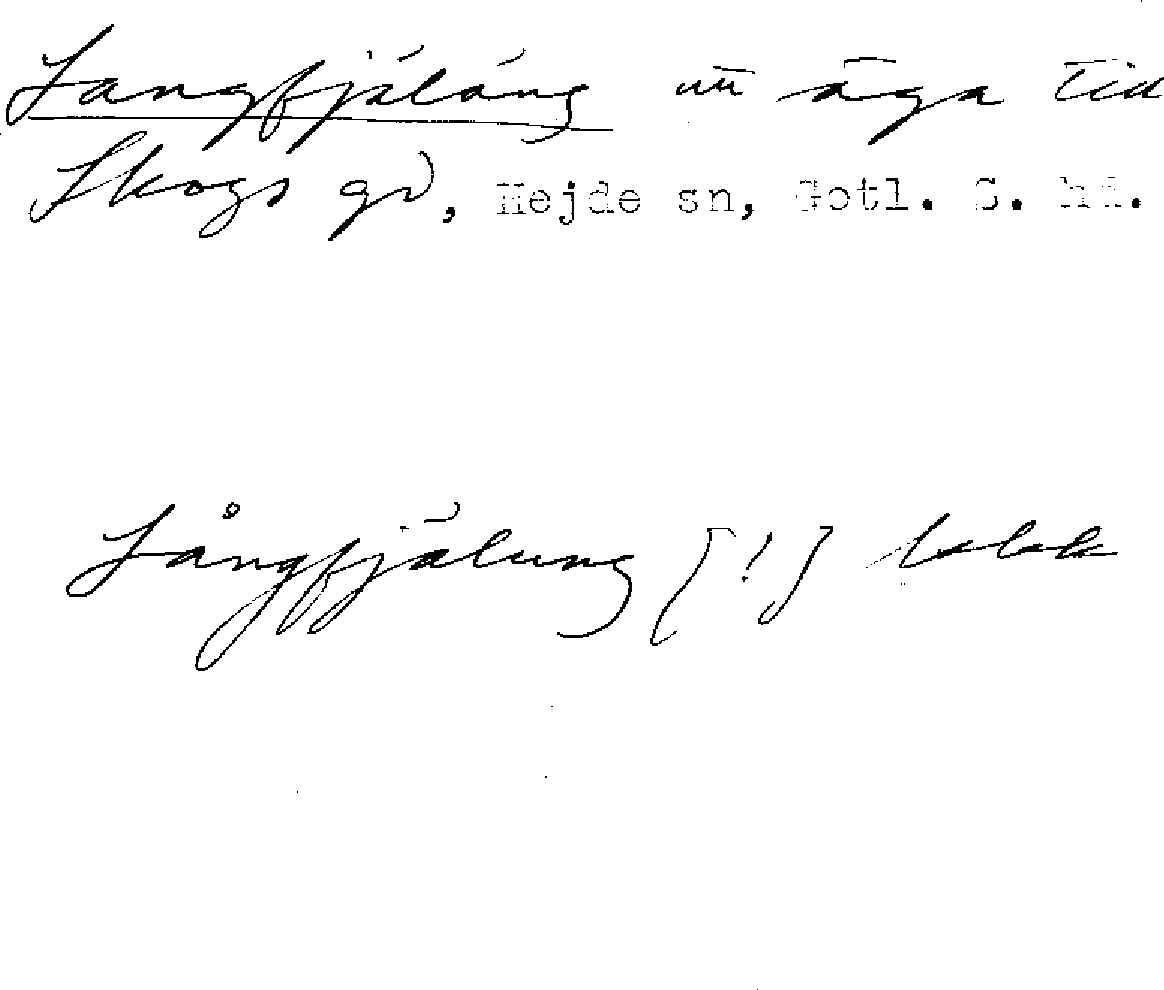 Langfjäläng äga till
Skogs gd, Hejde sn, Gotl. S. hd.
Långfjälung [!]